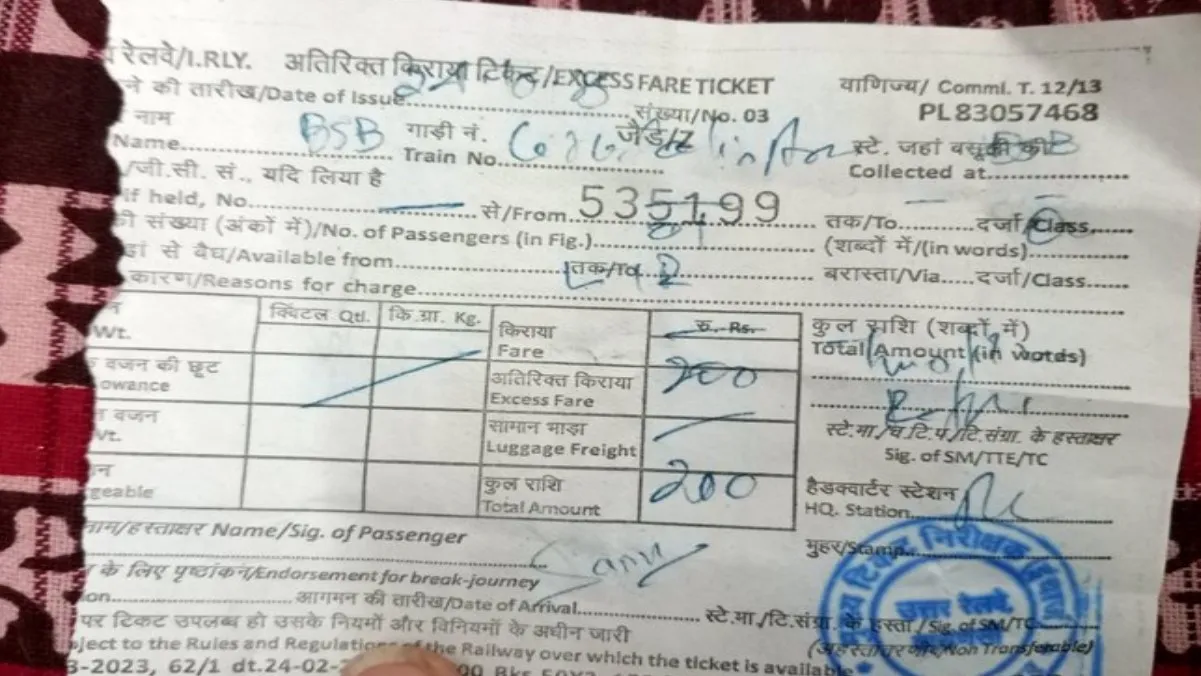 रेलवे/I.RLY. अतिरिक्त किराया टिकट/EXCESS FARE TICKET वाणिज्य/ Comml. T. 12/13
ने की तारीख/Date of Issue संख्या/No. 03 PL 83057468
नाम BSB गाड़ी नं. जैड/Z स्टे. जहां वसूली की
Name Train No. Collected at
/जी.सी. सं., यदि लिया है
if held, No. से/From 535199 तक/To दर्जा/Class,
की संख्या (अंकों में)/No. of Passengers (in Fig.) (शब्दों में/(in words)
हां से वैध/Available from तक/To बरास्ता/Via दर्जा/Class
कारण/Reasons for charge
क्विंटल Qtl. कि.ग्रा. Kg. किराया रु. Rs. कुल राशि (शब्दों में)
Wt. Fare Total Amount (in words)
वजन की छूट अतिरिक्त किराया 200
owance Excess Fare
वजन सामान भाड़ा स्टे.मा./च.टि.प./टि.संग्रा. के हस्ताक्षर
Wt. Luggage Freight Sig. of SM/TTE/TC
कुल राशि 200 हैडक्वार्टर स्टेशन
geable Total Amount HQ. Station
नाम/हस्ताक्षर Name/Sig. of Passenger मुहर/Stamp
के लिए पृष्ठांकन/Endorsement for break-journey
on आगमन की तारीख/Date of Arrival स्टे.मा./टि.संग्रा. के हस्ता./Sig. of SM/TC
पर टिकट उपलब्ध हो उसके नियमों और विनियमों के अधीन जारी (अहस्तांतरणीय/Non Transferable)
ject to the Rules and Regulations of the Railway over which the ticket is available
-2023, 62/1 dt.24-02-
टिकट निरीक्षक
उत्तर रेलवे